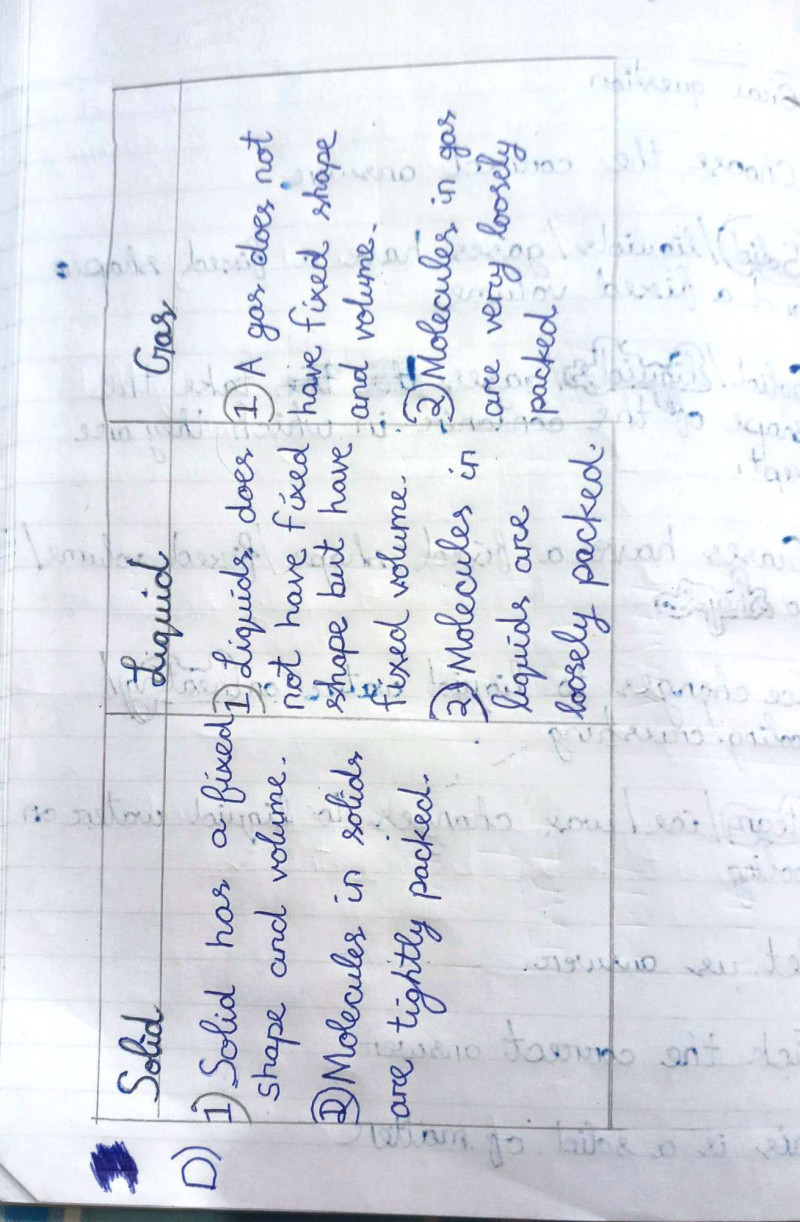 Solid
Liquid
Gas
D)
1) Solid has a fixed
shape and volume.
2) Molecules in solids
are tightly packed.
1) Liquids does
not have fixed
shape but have
fixed volume.
2) Molecules in
liquids are
loosely packed.
1) A gas does not
have fixed shape
and volume.
2) Molecules in gas
are very loosely
packed